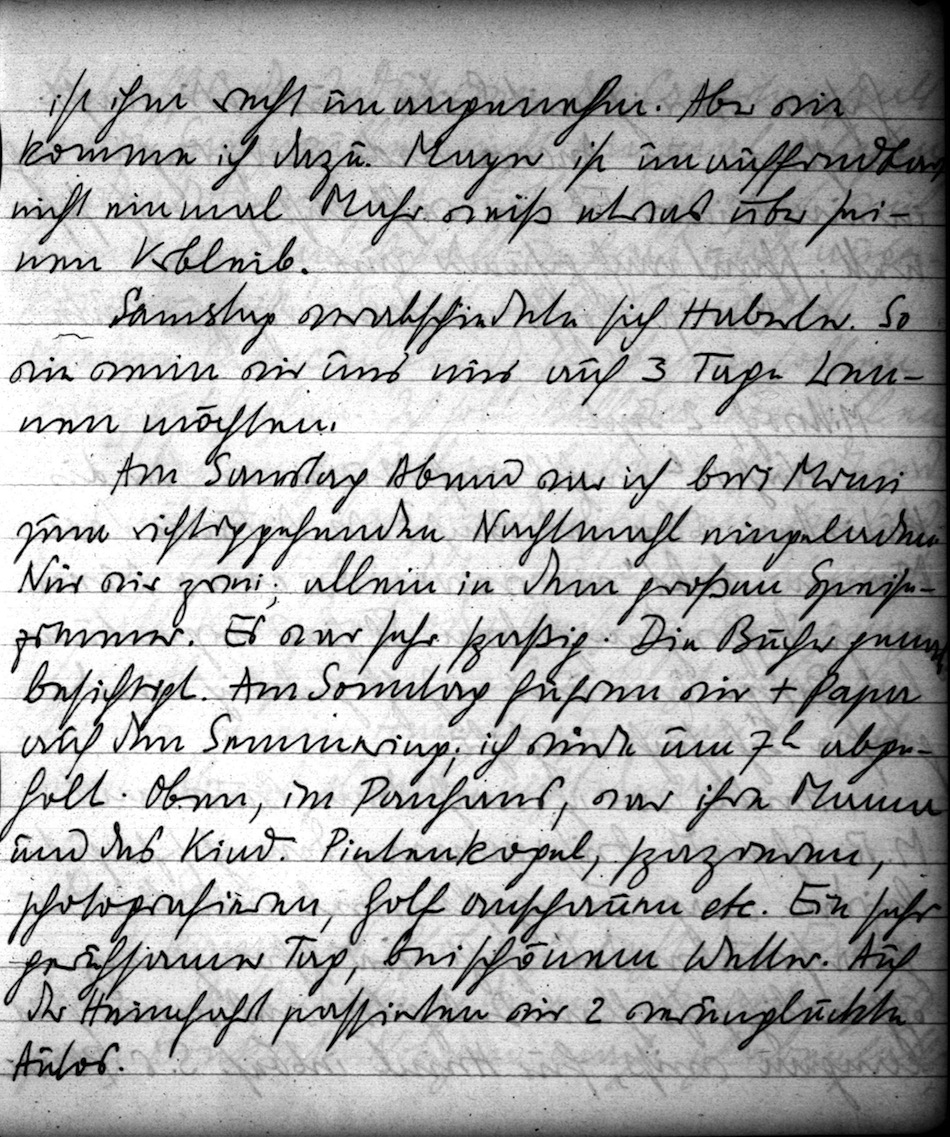 ist ihm recht unangenehm. Aber wie
komme ich dazu. Mayer ist unauffindbar,
nicht einmal Mahr weiß etwas über sei-
nen Verbleib.
Samstag verabschiedete sich Haberler. So
wie wenn wir uns nur auf 3 Tage tren-
nen möchten.
Am Samstag Abend war ich bei
zum richtiggehenden Nachtmahl eingeladen
Nur wir zwei; allein in dem großen Speise-
zimmer. Es war sehr spaßig. Die Bücher genau
besichtigt. Am Sonntag fuhren wir + Papa
auf den Semmering; ich wurde um 7h abge-
holt. Oben, im Panhans, war ihre Mama
und das Kind. Pinkenkogel, spazieren,
photografieren, Golf anschauen etc. Ein sehr
geruhsamer Tag, bei schönem Wetter. Auf
der Heimfahrt passierten wir 2 verunglückte
Autos.